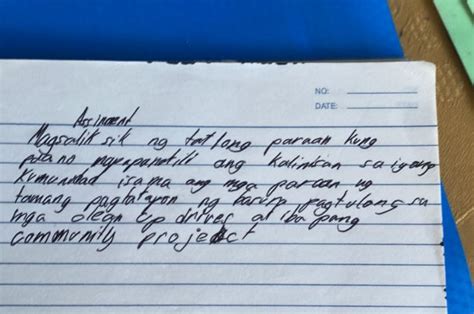 NO:
DATE:
Assinment
Magsaliksik ng tatlong paraan kung
paano mapapanatili ang kalinisan sa iyong
kumunidad isama ang mga paraan ng
tamang pagtatapon ng basura pagtulong sa
mga clean up drives at iba pang
community project